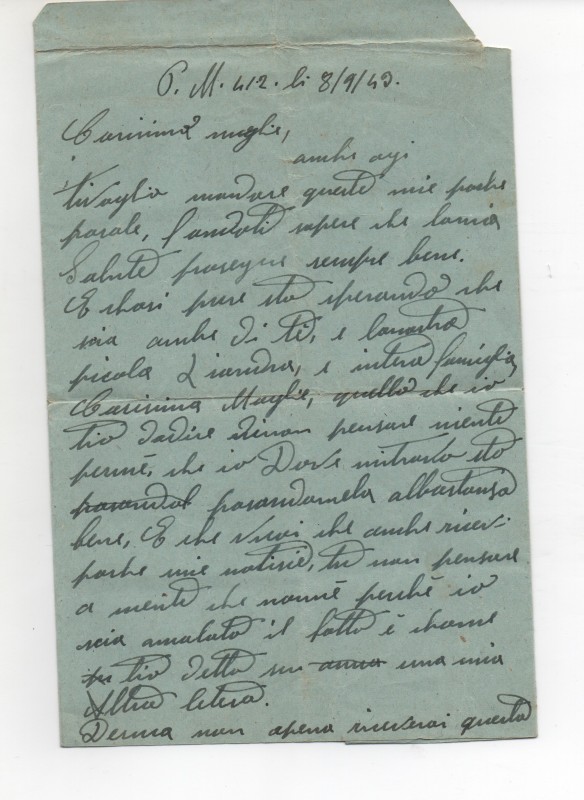 P. M. 412. li 8/9/43.
Carisima moglie,
anche ogi
ti voglio mandare queste mie poche
parole, facendoti sapere che lamia
Salute prosegue sempre bene.
E chosi pure sto sperando che
sia anche di te, e lanostra
picola Liandra, e intera famiglia
Carisima Moglie, quello che io
tio dadire dinon pensare niente
permé, che io Dove mitrovlo sto
pasandol pasandomela albastansa
bene, E che vuoi che anche ricevi
poche mie notisie, tu non pensare
a niente che nonné perché io
sia amalato il fatto é chome
tio detto su una mia
Altra letera.
Dunna non apena riceverai questa